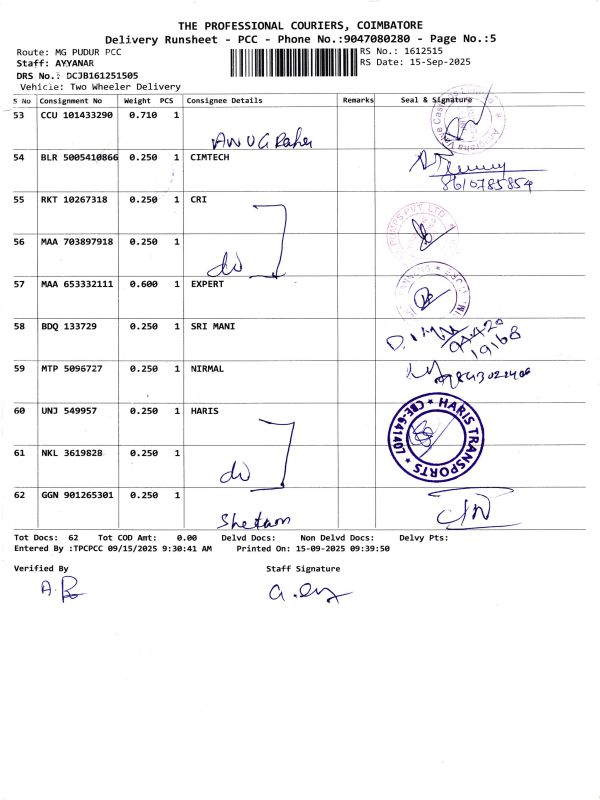 THE PROFESSIONAL COURIERS, COIMBATORE
Delivery Runsheet - PCC - Phone No.:9047080280 - Page No.:5
Route: MG PUDUR PCC
RS No.: 1612515
Staff: AYYANAR
RS Date: 15-Sep-2025
DRS No.: DCJB161251505
Vehicle: Two Wheeler Delivery
S No Consignment No Weight PCS Consignee Details Remarks Seal & Signature
53 CCU 101433290 0.710 1
54 BLR 5005410866 0.250 1 CIMTECH
8610785854
55 RKT 10267318 0.250 1 CRI
PUMPS PVT LTD
56 MAA 703897918 0.250 1
57 MAA 653332111 0.600 1 EXPERT
58 BDQ 133729 0.250 1 SRI MANI
19168
59 MTP 5096727 0.250 1 NIRMAL
60 UNJ 549957 0.250 1 HARIS
HARIS TRANSPORTS
CBE-641407
61 NKL 361982B 0.250 1
62 GGN 901265301 0.250 1
Tot Docs: 62 Tot COD Amt: 0.00 Delvd Docs: Non Delvd Docs: Delvy Pts:
Entered By :TPCPCC 09/15/2025 9:30:41 AM Printed On: 15-09-2025 09:39:50
Verified By Staff Signature